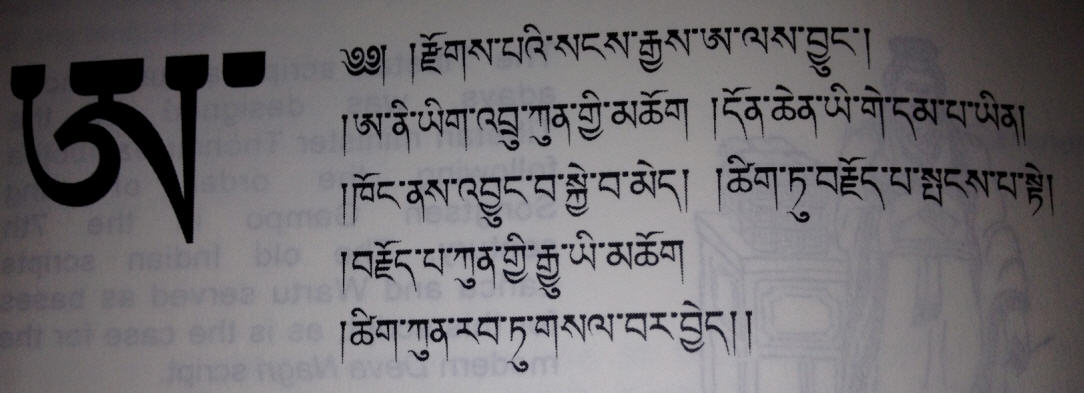 ཨ་
༄༅། །རྫོགས་པའི་སངས་རྒྱས་ཨ་ལས་བྱུང་།
།ཨ་ནི་ཡིག་འབྲུ་ཀུན་གྱི་མཆོག །དོན་ཆེན་ཡི་གེ་དམ་པ་ཡིན།
།ཁོང་ནས་འབྱུང་བ་སྐྱེ་བ་མེད། །ཚིག་ཏུ་བརྗོད་པ་སྤངས་པ་སྟེ།
།བརྗོད་པ་ཀུན་གྱི་རྒྱུ་ཡི་མཆོག
།ཚིག་ཀུན་རབ་ཏུ་གསལ་བར་བྱེད།།